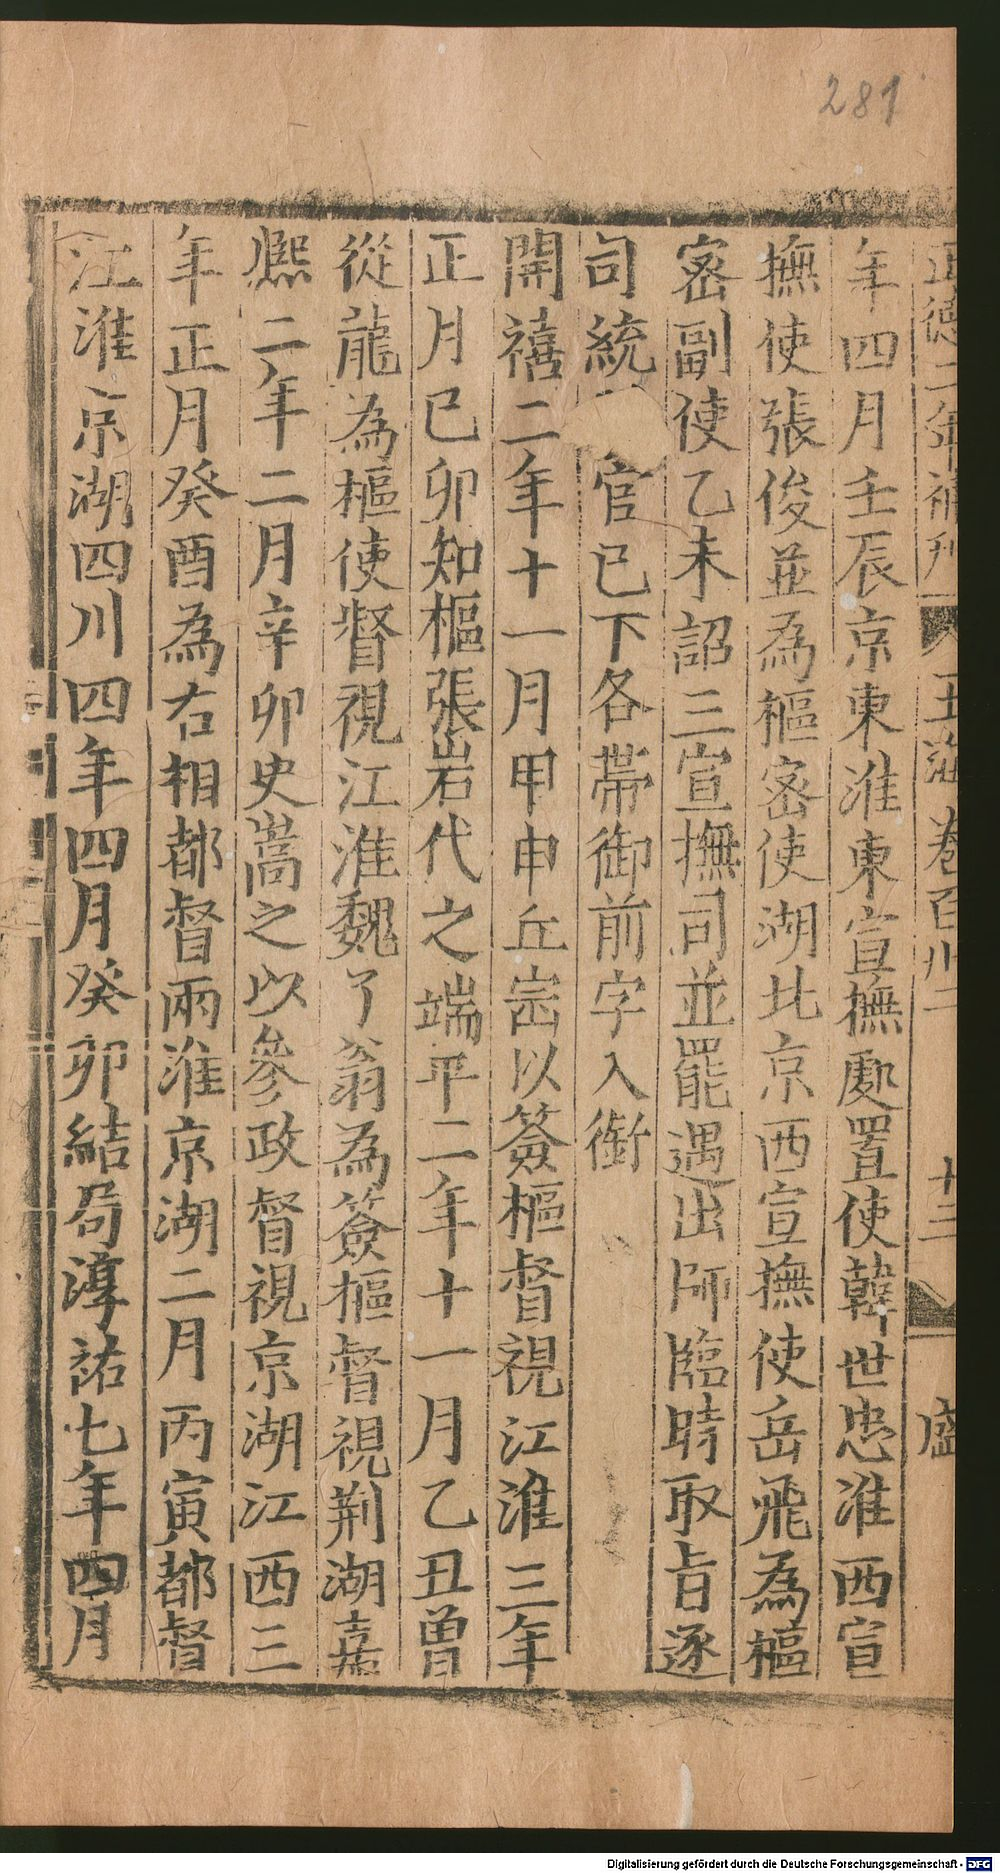 281
正德二年補刊 玉海卷百卅二 十三 盛
年四月壬辰京東淮東宣撫處置使韓世忠淮西宣
撫使張俊並為樞密使湖北京西宣撫使岳飛為樞
密副使乙未詔三宣撫司並罷遇出師臨時取旨逐
司統 官已下各帶御前字入銜
開禧二年十一月甲申丘崈以簽樞督視江淮三年
正月已卯知樞張岩代之端平二年十一月乙丑曾
從龍為樞使督視江淮魏了翁為簽樞督視荆湖嘉
熈二年二月辛卯史嵩之以參政督視京湖江西三
年正月癸酉為右相都督兩淮京湖二月丙寅都督
江淮京湖四川四年四月癸卯結局淳祐七年四月
Digitalisierung gefördert durch die Deutsche Forschungsgemeinschaft - DFG